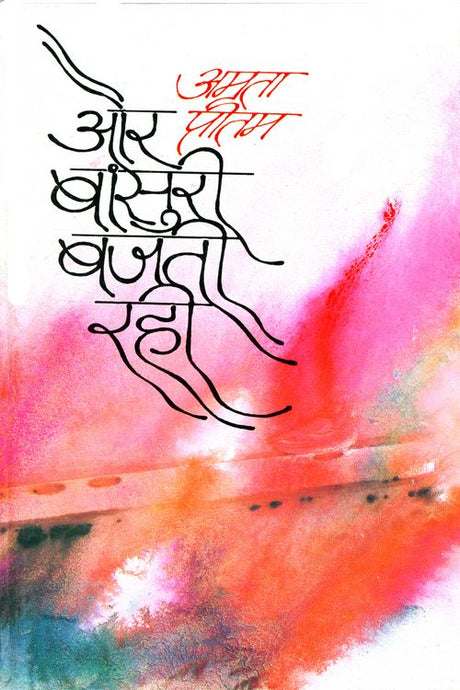 अमृता
प्रीतम
और
बांसुरी
बजती
रही